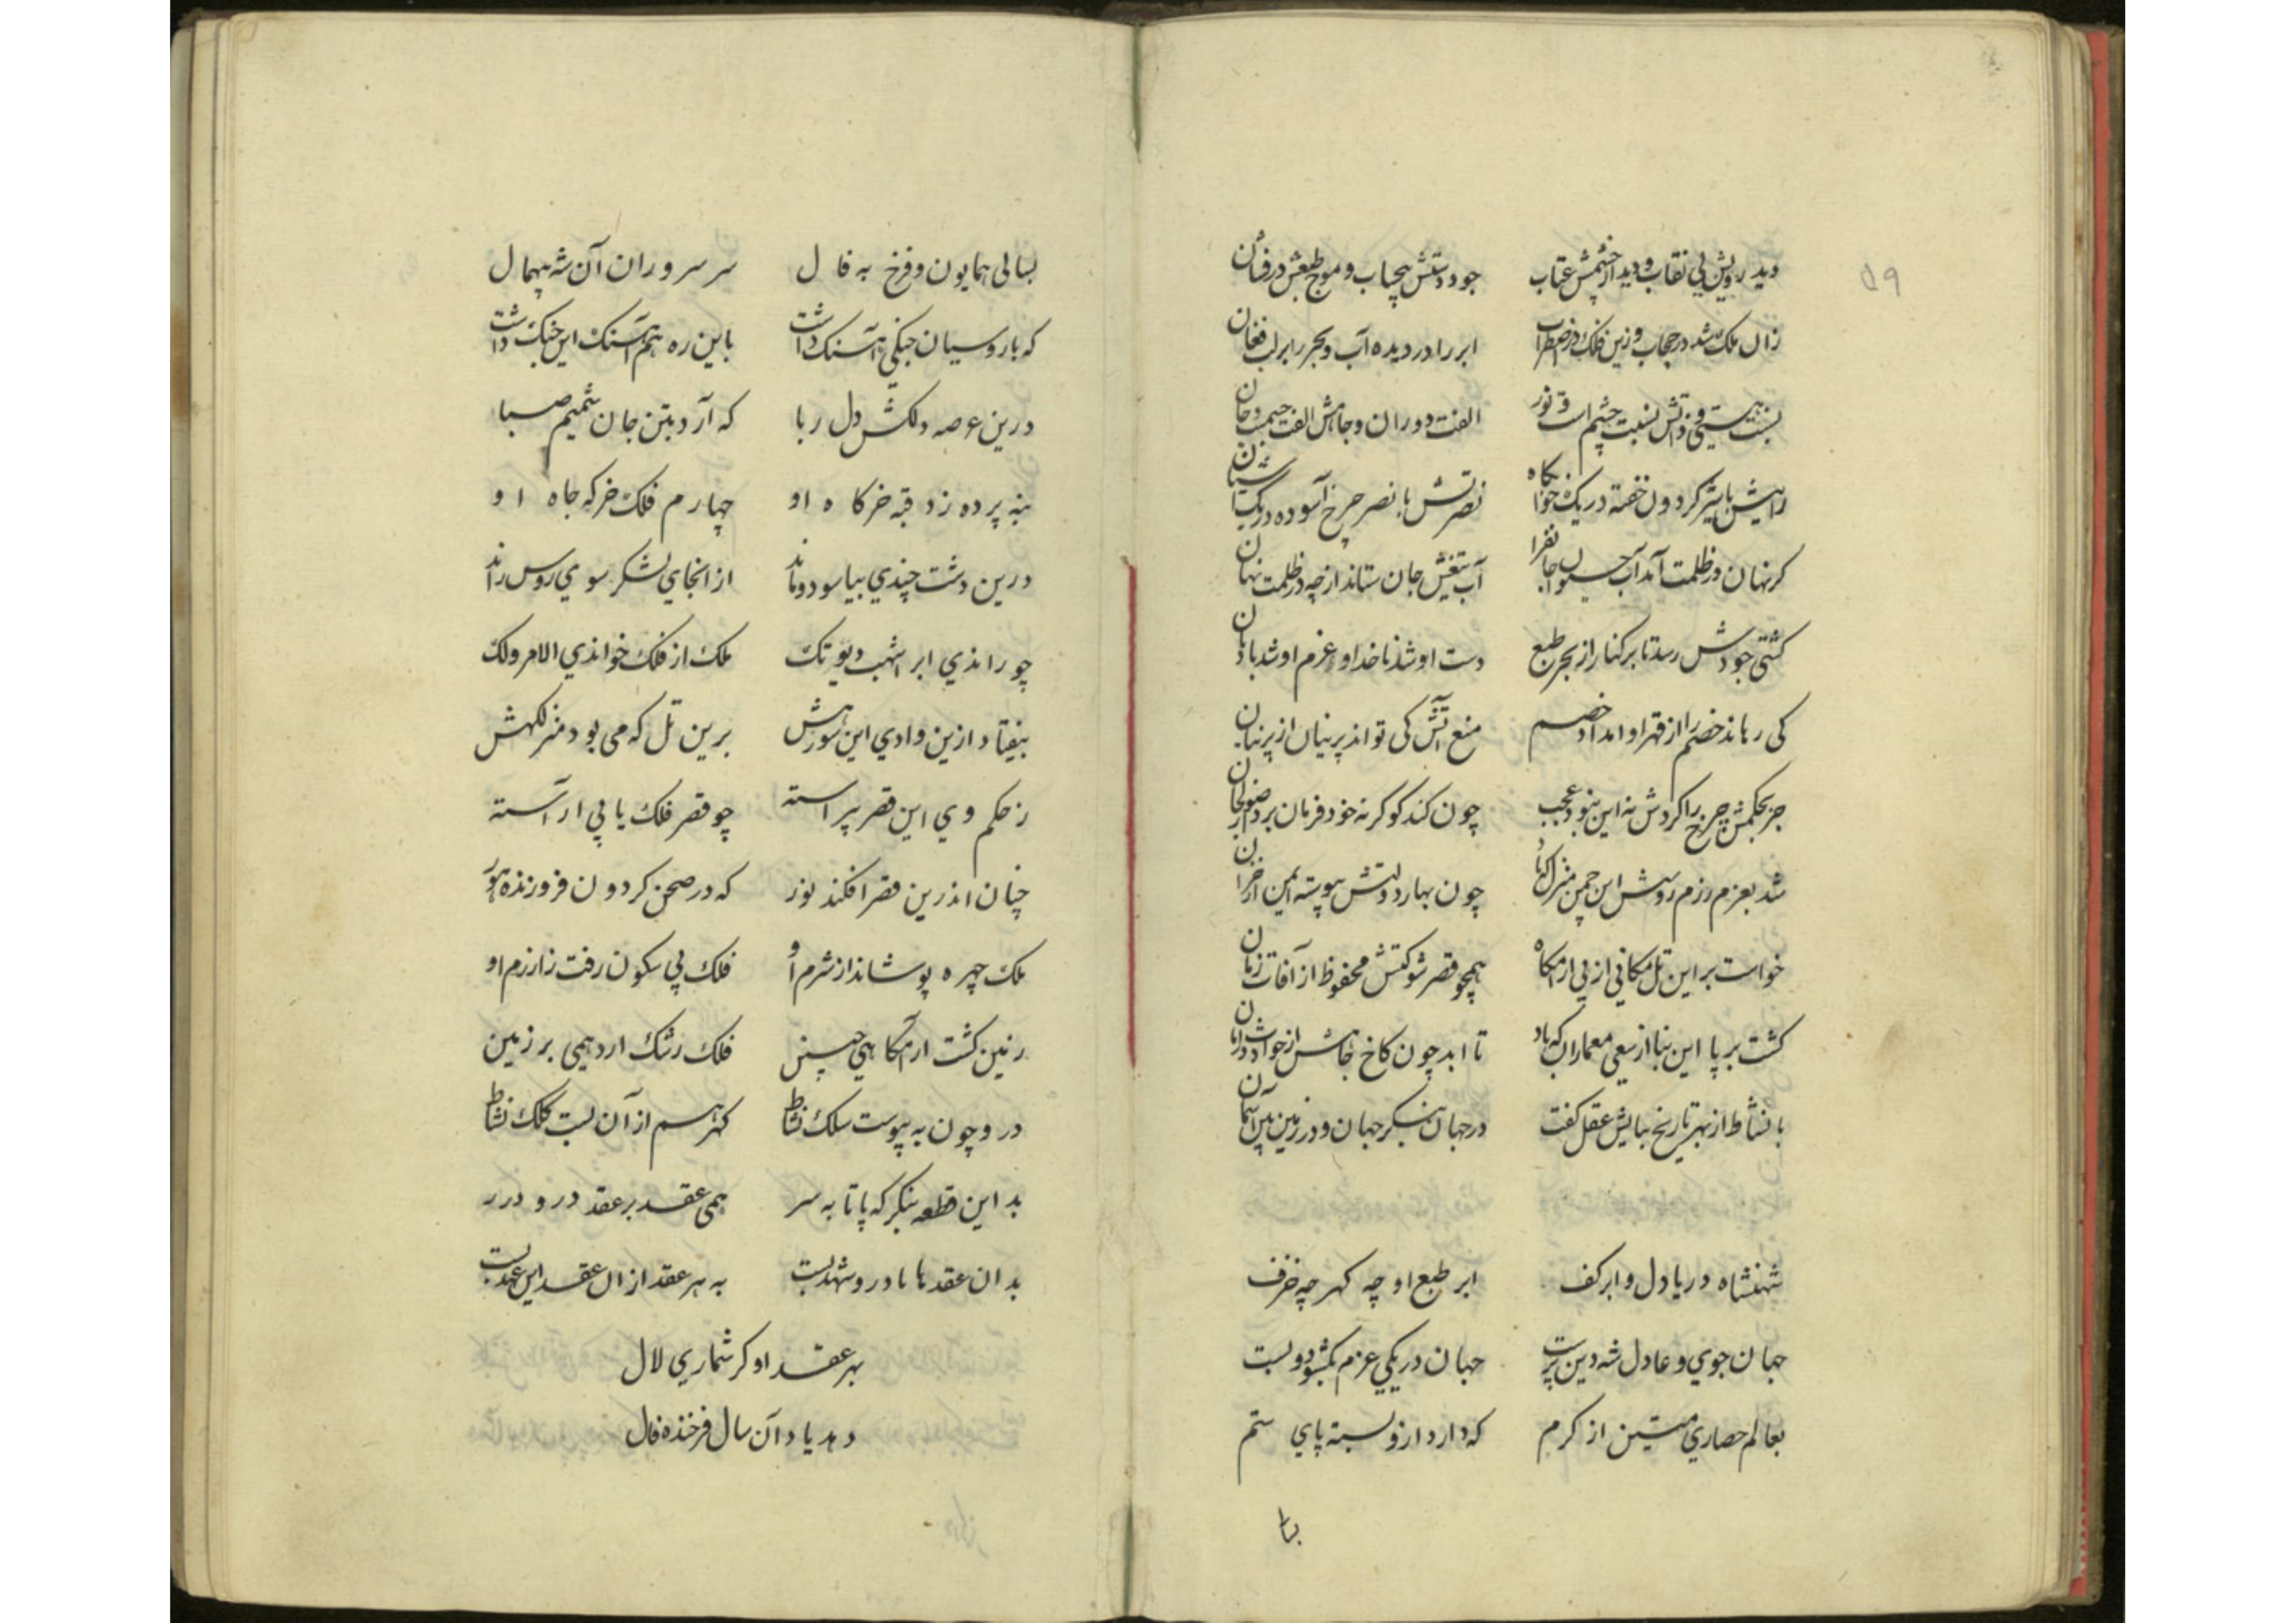 ۵۹
دید رویش بی نقاب و دید از خشمش عتاب جود دستش بیحساب و موج طبعش درفشان
زان ملک شد در حجاب و زین فلک در اضطراب ابر را در دیده آب و بحر را بر لب فغان
نسبت هستی و ذاتش نسبت چشم است و نور الفت دوران و جاهش الفت جسمست و جان
رایتش با شیر گردون خفته در یک خوابگاه نصرتش با نصر چرخ آسوده در یک آشیان
گر نهان در ظلمت آمد آب حیوان جانفزا آب تیغش جان ستاند از چه در ظلمت نهان
کشتی جودش رسد تا بر کنار از بحر طبع دست او شد ناخدا و عزم او شد بادبان
کی رهاند خصم را از قهر او امداد خصم منع آتش کی تواند پرنیان از پرنیان
جز بحکمش چرخ را گردش نه این نبود عجب چون کند گو گر نه خود فرمان برد از صولجان
شد بعزم رزم روسش این چمن منزل که باد چون بهار دولتش پیوسته ایمن از خزان
خواست بر این تل مکانی از پی آرامگاه همچو قصر شوکتش محفوظ از آفات زمان
گشت بر پا این بنا از سعی معماران که باد تا ابد چون کاخ جاهش از حوادث در امان
با نشاط از بهر تاریخ بنایش عقل گفت در جهان بنگر جهان و در زمین بین آسمان
شهنشاه دریا دل و ابر کف ابر طبع او چه گهر چه خزف
جهان جوی و عادل شه دین پرست جهان در یکی عزم بگشود و بست
بعالم حصاری متین از کرم که دارد ازو بسته پای ستم
بسا
بسالی همایون و فرخ به فال سر سروران آن شه بیهمال
که با روسیان جنگی آهنگ داشت باین ره هم آهنگ این جنگ داشت
درین عرصه دلکش دل ربا که آرد بتن جان شمیم صبا
بنه پرده زد قبه خرگاه او چهارم فلک خرگه جاه او
درین دشت چندی بیاسود و ماند از انجای لشکر سوی روس راند
چو راندی ابر اشهب دیو تک ملک از فلک خواندی الامر ولک
بیفتاد ازین وادی این سو رهش برین تل که می بود منزلگهش
ز حکم وی این قصر پیراسته چو قصر فلک یابی آراسته
چنان اندرین قصر افکند نور که در صحن گردون فروزنده هور
ملک چهره پوشاند از شرم او فلک بی سکون رفت زارزم او
زمین گشت آرامگاهی چنین فلک رشک آرد همی بر زمین
درو چون به پیوست سلک نشاط گهر هم از آن بست کلک نشاط
بد این قطعه بنگر که پا تا به سر همی عقد بر عقد در و درر
بدان عقدها با درو شهدبست به هر عقد از ال عقد این عهد بست
بهر عقد او گر شماری لال
دهد یاد آن سال فرخنده فال